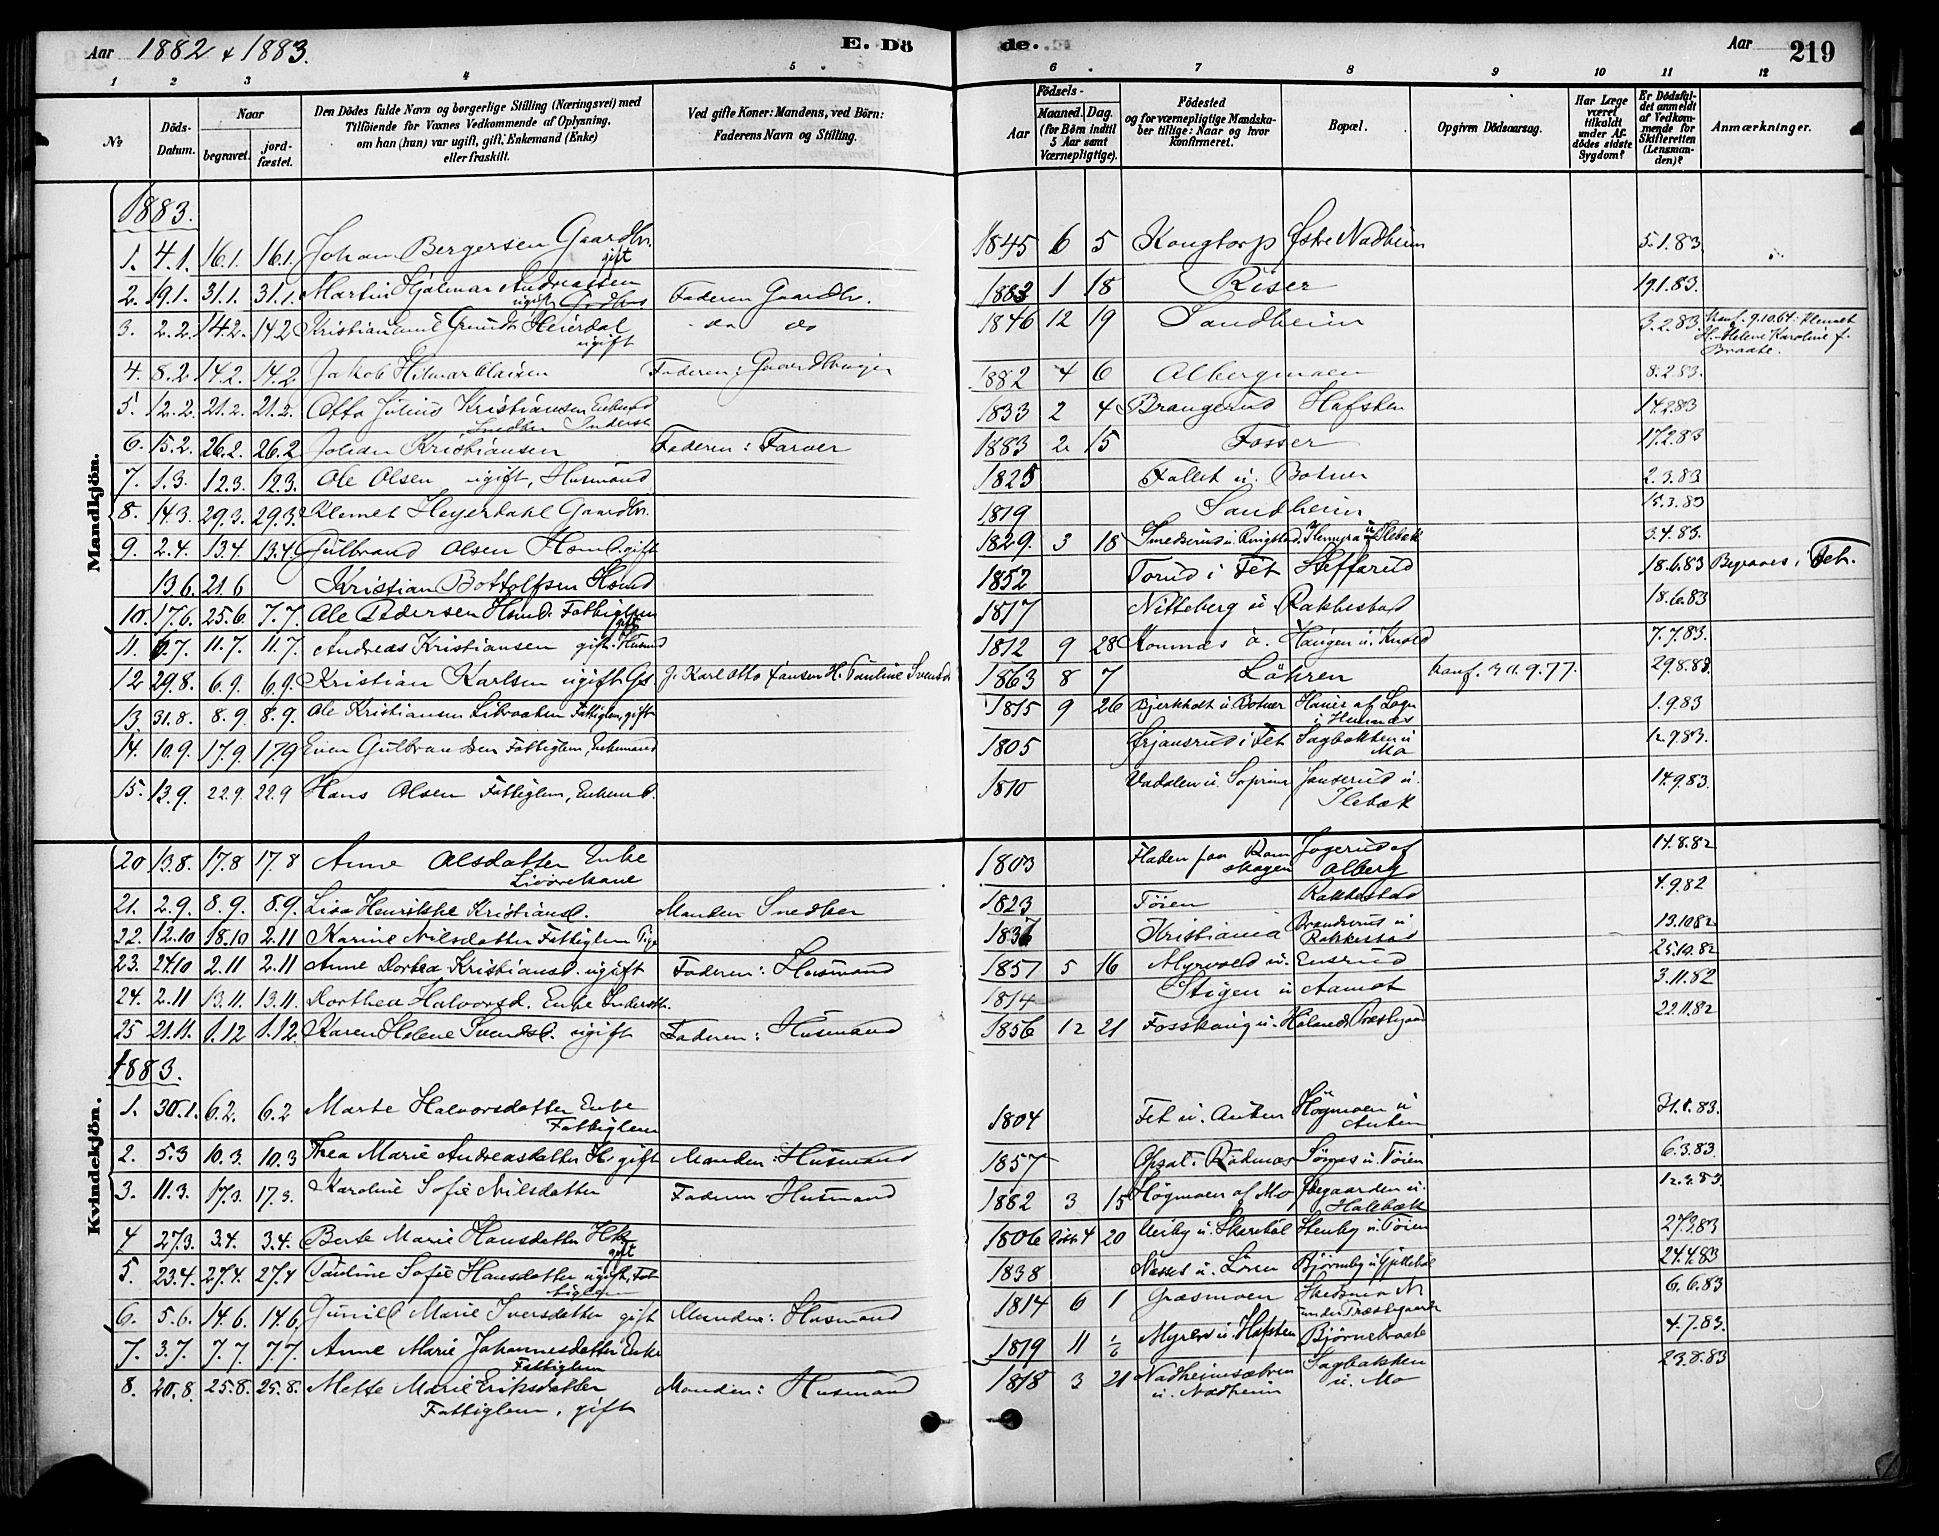 Aar 1882 & 1883. E. Dö de. Aar 219
1 2 3 4 5 6 7 8 9 10 11 12
No Döds-Datum. Naar begravet. jordfæstet. Den Dödes fulde Navn og borgerlige Stilling (Næringsvei) med Tilföiende for Voxnes Vedkommende af Oplysning, om han (hun) var ugift, gift, Enkemand (Enke) eller fraskilt. Ved gifte Koner: Mandens, ved Börn: Faderens Navn og Stilling. Aar Födsels- Maaned. Dag. (for Börn indtil 5 Aar samt Værnepligtige). Födested og for værnepligtige Mandskaber tillige: Naar og hvor konfirmeret. Bopæl. Opgiven Dödsaarsag. Har Læge været tilkaldt under Afdödes sidste Sygdom? Er Dödsfaldet anmeldt af Vedkommende for Skifteretten (Lensmanden)? Anmærkninger.
Mandkjön.
1883.
1. 4.1. 16.1. 16.1. Johan Bergersen Gaardbr. gift 1845 6 5 Kongtorp Østre Nadheim 5.1.83
2. 19.1. 31.1. 31.1. Martin Hjalmar Andreassen Faderen Gaardbr. 1883 1 18 Riser 19.1.83.
3. 2.2. 14.2. 14.2 Kristian Emil Heierdal ugift do do 1846 12 19 Sandheim 3.2.83. Helene Karoline f. Braate.
4. 8.2. 14.2. 14.2 Jakob Hilmar Faderen: Gaardbruger 1882 4 6 Albergmoen 8.2.83.
5. 12.2. 21.2. 21.2. Otto Julius Kristiansen Enkmd Snedker Inderst 1833 2 4 Brangerud Hafsten 14.2.83
6. 15.2. 26.2. 26.2 Johan Kristiansen Faderen: Farver 1883 2 15 Fosser 17.2.83
7. 1.3. 12.3. 12.3. Ole Olsen ugift, Husmand 1825 Fallet u. Botner 2.3.83
8. 14.3. 29.3. 29.3. Klemet Heyerdahl Gaardbr. 1819 Sandheim 15.3.83
9. 2.4. 13.4. 13.4. Gulbrand Olsen Hsmd. gift 1829. 3 18 Smedsrud u. Ringstad 3.4.83.
13.6. 21.6 Kristian Bottolfsen Hsmd 1852 Torud i Fet Steffarud 18.6.83 Begraves i Fet.
10. 17.6. 25.6. 7.7. Ole Pedersen Hsmd. Fattiglem gift 1817 Nitteberg u Rakkestad 18.6.83
11. 6.7. 11.7. 11.7. Andreas Kristiansen gift. Husmd 1812 9 28 Haugen u. Knold 7.7.83.
12 29.8. 6.9. 6.9. Kristian Karlsen ugift F. Karl Otto Jansen M. Pauline Svendsd. 1863 8 7 Löhren Konf. 30.9.77. 29.8.83.
13. 31.8. 8.9. 8.9. Ole Kristiansen Fattiglem, gift 1815 9 26 Bjerkholt u Botner i Hemnæs 1.9.83
14. 10.9. 17.9. 17.9 Even Gulbrandsen Fattiglem, Enkemand 1805 Ørjansrud i Fet Sagbakken u Mo 12.9.83.
15. 13.9. 22.9. 22.9 Hans Olsen Fattiglem, Enkemd. 1810 Vadalen u. Soprim Janserud u. Ilebæk 14.9.83.
Kvindekjön.
20 13.8. 17.8 17.8 Anne Olsdatter Enke Livörekone 1803 Fladen paa Romskogen Jogerud af Alberg 14.8.82
21. 2.9. 8.9. 8.9. Lisa Henrikke Kristiansd. Manden Snedker 1823 Töien Rakkestad 4.9.82
22. 12.10 18.10 2.11 Karine Nilsdatter Fattiglem Pige 1837 Kristiania Brandsrud u Rakkestad 13.10.82
23. 24.10 2.11 2.11 Anne Dorthea Kristiansd. ugift Faderen: Husmand 1857 5 16 Myrvold u. Ensrud 25.10.82
24. 2.11 13.11. 13.11. Dorthea Halvorsd. Enke Inderst. 1814 Stigen u Aamot 3.11.82
25 21.11. 1.12 1.12. Karen Helene Svendsd. ugift Faderen: Husmand 1856 12 21 Fosskaug u. Hölands Præstgaard 22.11.82
1883.
1. 30.1. 6.2. 6.2 Marte Halvorsdatter Enke Fattiglem 1804 Fet u. Auten Högmoen u Auten 31.1.83.
2. 5.3 10.3. 10.3 Thea Marie Andreasdatter H. gift Manden: Husmand 1857 Opsal i Rödenæs Sönæs u. Töien 6.3.83.
3. 11.3. 17.3. 17.3. Karoline Sofie Nilsdatter Faderen Husmand 1882 3 15 Högmoen af Mo Ødegaarden u. Halebæk 12.3.83
4 27.3. 3.4. 3.4. Berte Marie Hansdatter gift 1806 4 20 Stenby u. Töien 27.3.83
5. 23.4. 27.4. 27.4 Pauline Sofie Hansdatter ugift, Fattiglem 1838 Næsset u. Lören 24.4.83
6. 5.6. 14.6. 14.6. Gunild Marie Iversdatter gift Manden: Husmand 1814 6 1 Græsmoen under Præstegaard 6.6.83
7. 3.7. 7.7. 7.7. Anne Marie Johannesdatter Enke Fattiglem 1819 11 1/6 u. Hafsten Bjørnebraate 4.7.83.
8. 20.8. 25.8. 25.8. Mette Marie Eriksdatter Fattiglem, gift Manden: Husmand 1818 3 21 Nadheimsætren u. Nadheim Sagbakken u. Mo 23.8.83